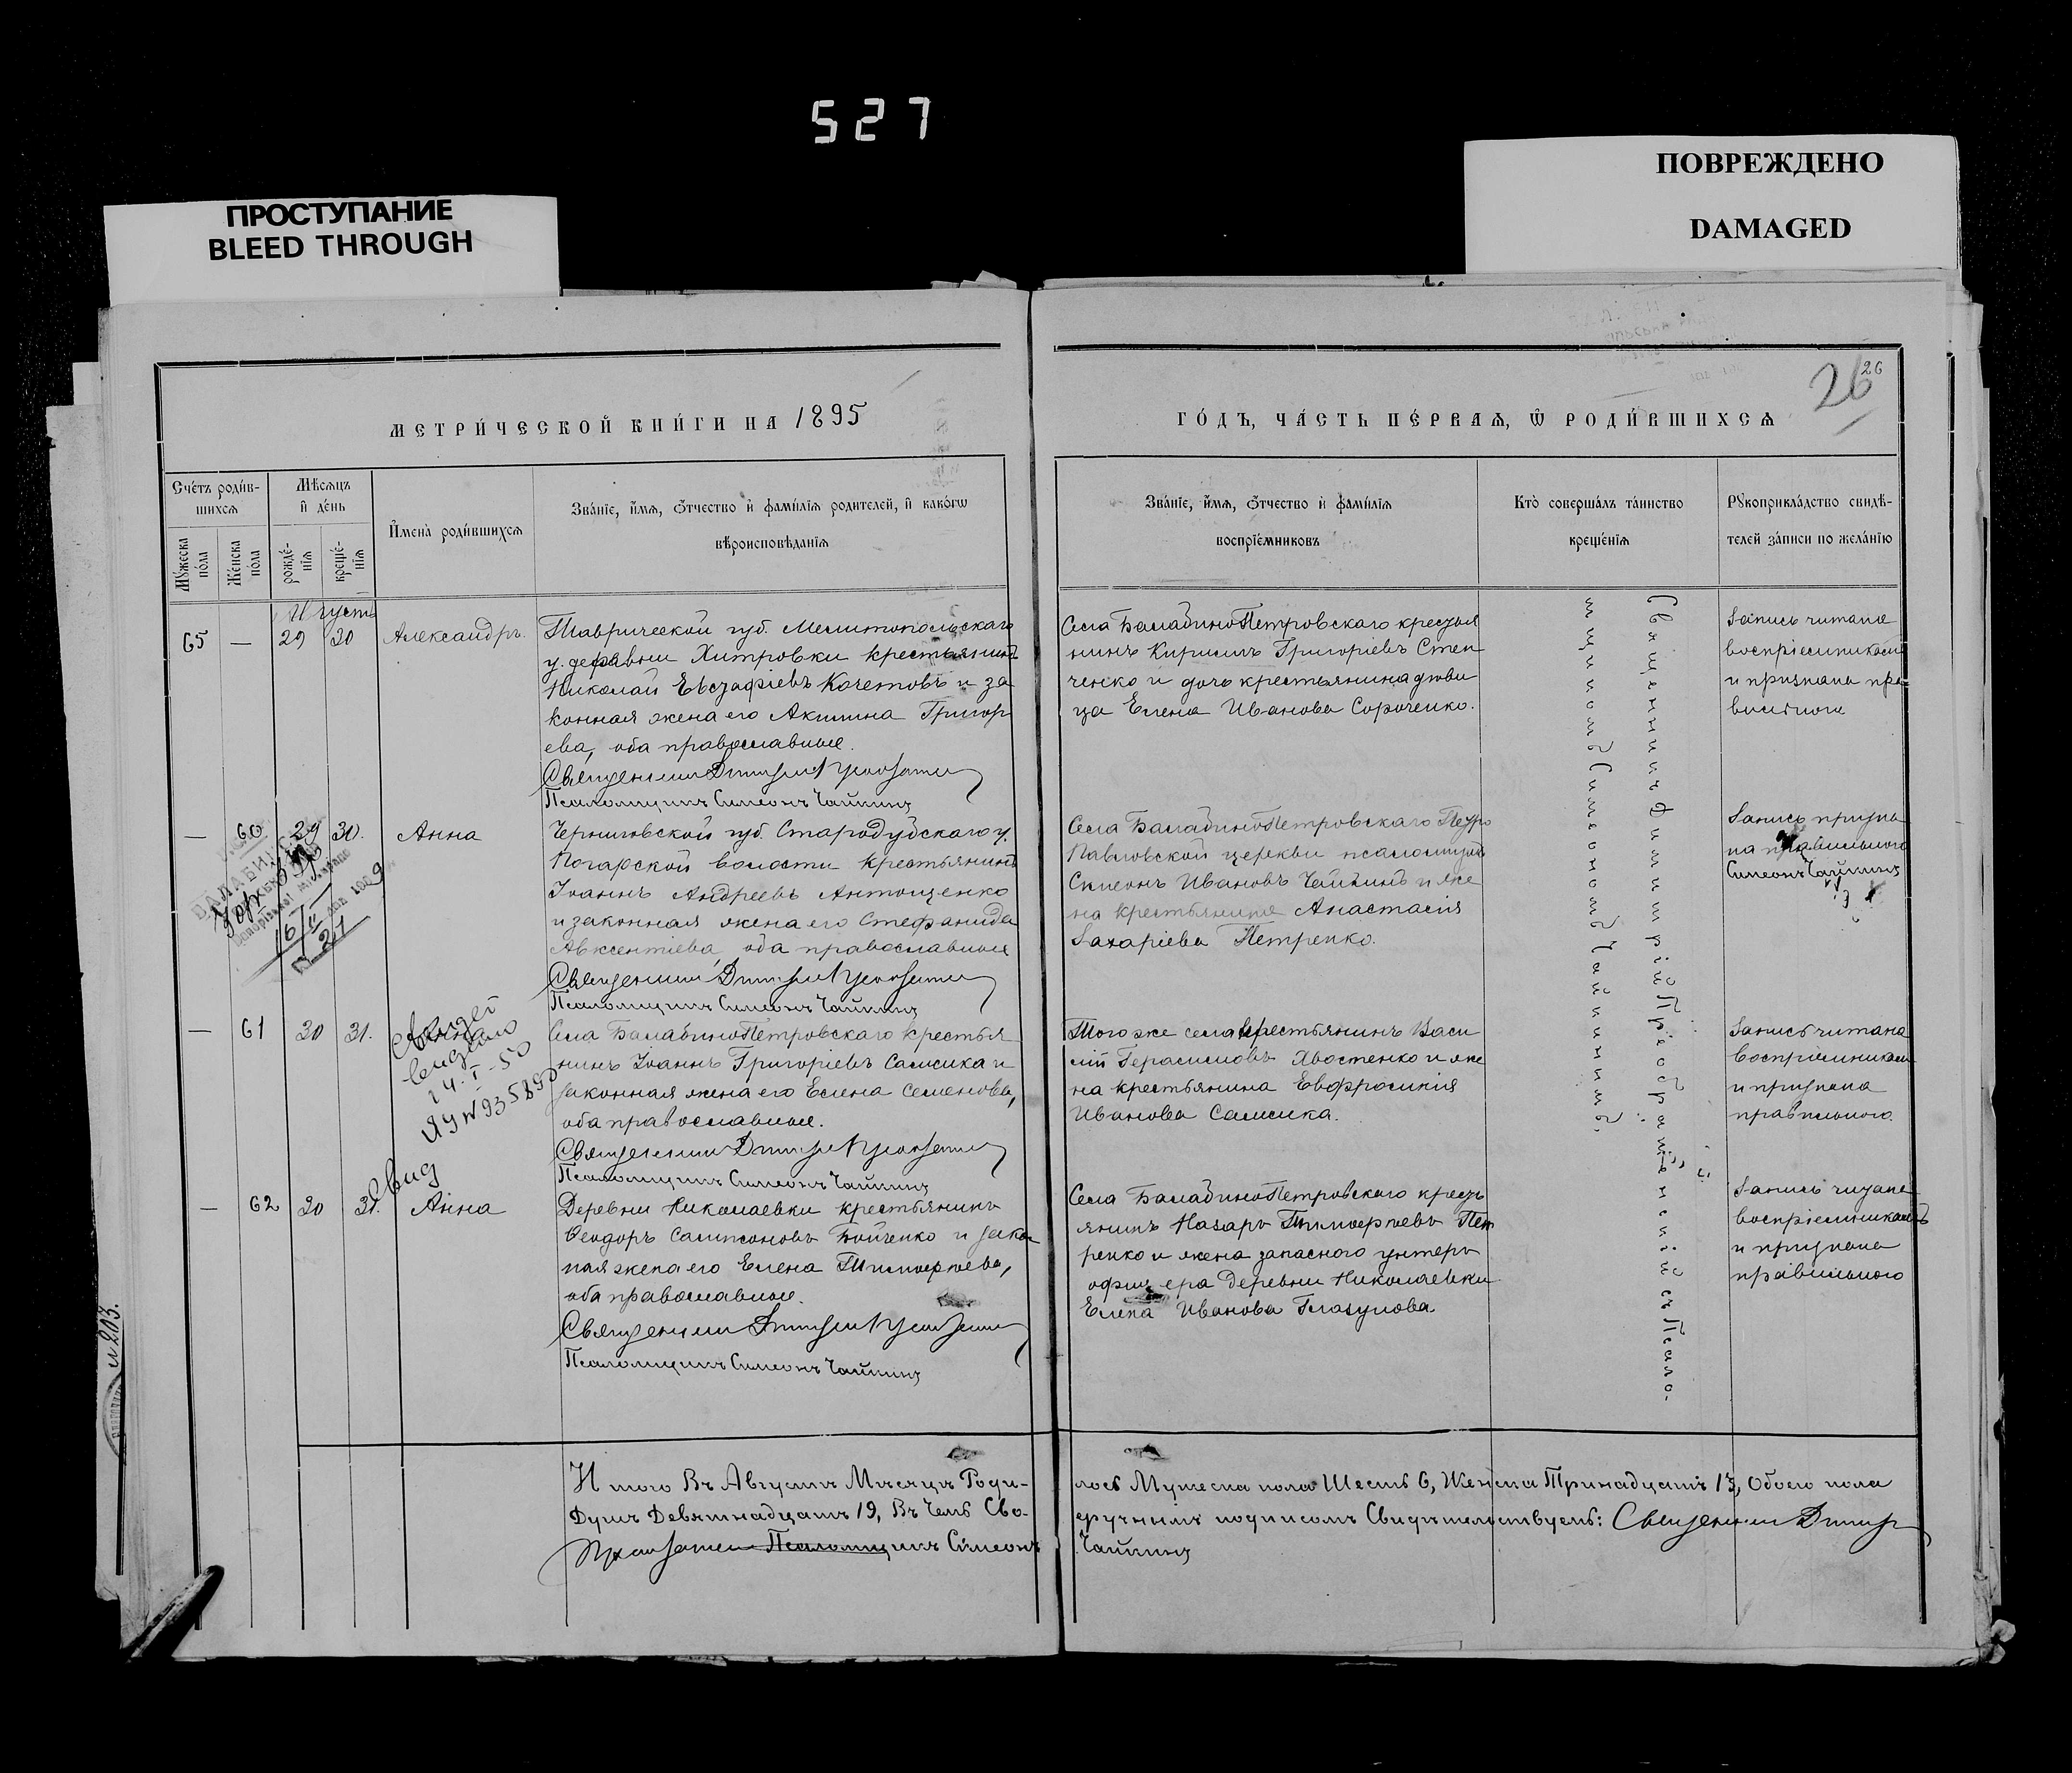 527
ПРОСТУПАНИЕ
BLEED THROUGH
ПОВРЕЖДЕНО
DAMAGED
26
26
МЕТРИ́ЧЕСКОЙ КНИ́ГИ НА 1895
ГО́ДЪ, ЧА́СТЬ ПЕ́РВАѦ, Ѿ РОДИ́ВШИХСѦ
Сче́тъ роди́в-
шихсѧ
Мѣ́сѧцъ
и҆ де́нь
Мꙋ́жеска по́ла
Же́нска по́ла
рожде́-
нїѧ
креще́-
нїѧ
И҆мена̀ роди́вшихсѧ
Зва́нїе, и҆́мѧ, ѻ҆́тчество и҆ фами́лїѧ роди́телей, и҆ како́гѡ
вѣроисповѣ́данїѧ
Зва́нїе, и҆́мѧ, ѻ҆́тчество и҆ фами́лїѧ
воспрїе́мниковъ
Кто̀ соверша́лъ та́инство
креще́нїѧ
Рꙋкоприкла́дство свидѣ́-
телей за́писи по жела́нїю
Августъ
65 — 29 30 Александръ.
Таврической губ. Мелитопольскаго
у. деревни Хитровки крестьянинъ
Николай Евстафіевъ Кочетовъ и за
конная жена его Акилина Григор
ева, оба православные.
Священникъ Димитрій
Псаломщикъ Симеонъ Чайкинъ
Села БалабиноПетровскаго крестья
нинъ Кирилъ Григоріевъ Степ
ченко и дочь крестьянина дѣви
ца Елена Иванова Сороченко.
Запись читана
воспріемникам
и признана пра-
вильного
— 60 29 30. Анна
Черниговской губ. Стародубскаго у.
Погарской волости крестьянинъ
Іоаннъ Андреевъ Антощенко
и законная жена его Стефанида
Авксентіева, оба православные
Священникъ Димитрій
Псаломщикъ Симеонъ Чайкинъ
Села БалабиноПетровскаго Петро
Павловской церкви псаломщикъ
Симеонъ Ивановъ Чайкинъ и же
на крестьянина Анастасія
Захаріева Петренко.
Запись призна
на правильного
Симеонъ Чайкинъ
— 61 30 31.
14-I-50
Села БалабиноПетровскаго крестья
нинъ Іоаннъ Григоріевъ Самсика и
законная жена его Елена Семенова,
оба православные.
Священникъ Димитрій
Псаломщикъ Симеонъ Чайкинъ
Того же села крестьянинъ Васи
лій Герасимовъ Хвостенко и же
на крестьянина Евфросинія
Иванова Самсика.
Запись читана
воспріемникам
и признана
правильного.
— 62 30 31. Анна
Деревни Николаевки крестьянинъ
Ѳеодоръ Сампсоновъ Бойченко и зако
ная жена его Елена Тимоѳеева,
оба православные.
Священникъ Димитрій
Псаломщикъ Симеонъ Чайкинъ
Села БалабиноПетровскаго кресть
янинъ Назаръ Тимоѳеевъ Пет
ренко и жена запасного унтеръ
офицера деревни Николаевки
Елена Иванова Глазунова
Запись читана
воспріемникамъ
и признана
правильного
Священникъ Димитрій Преображенскій съ Псало-
мщикомъ Симеономъ Чайкинымъ.
Итого Въ Августѣ Мѣсяцѣ Роди-
лось Мужеска пола Шесть 6, Женска Тринадцать 13, Обоего пола
Душъ Девятнадцать 19, Въ Чемъ Сво-
еручнымъ подписомъ Свидѣтельствуемъ: Священникъ Димитр
Псаломщикъ Симеонъ
Чайкинъ